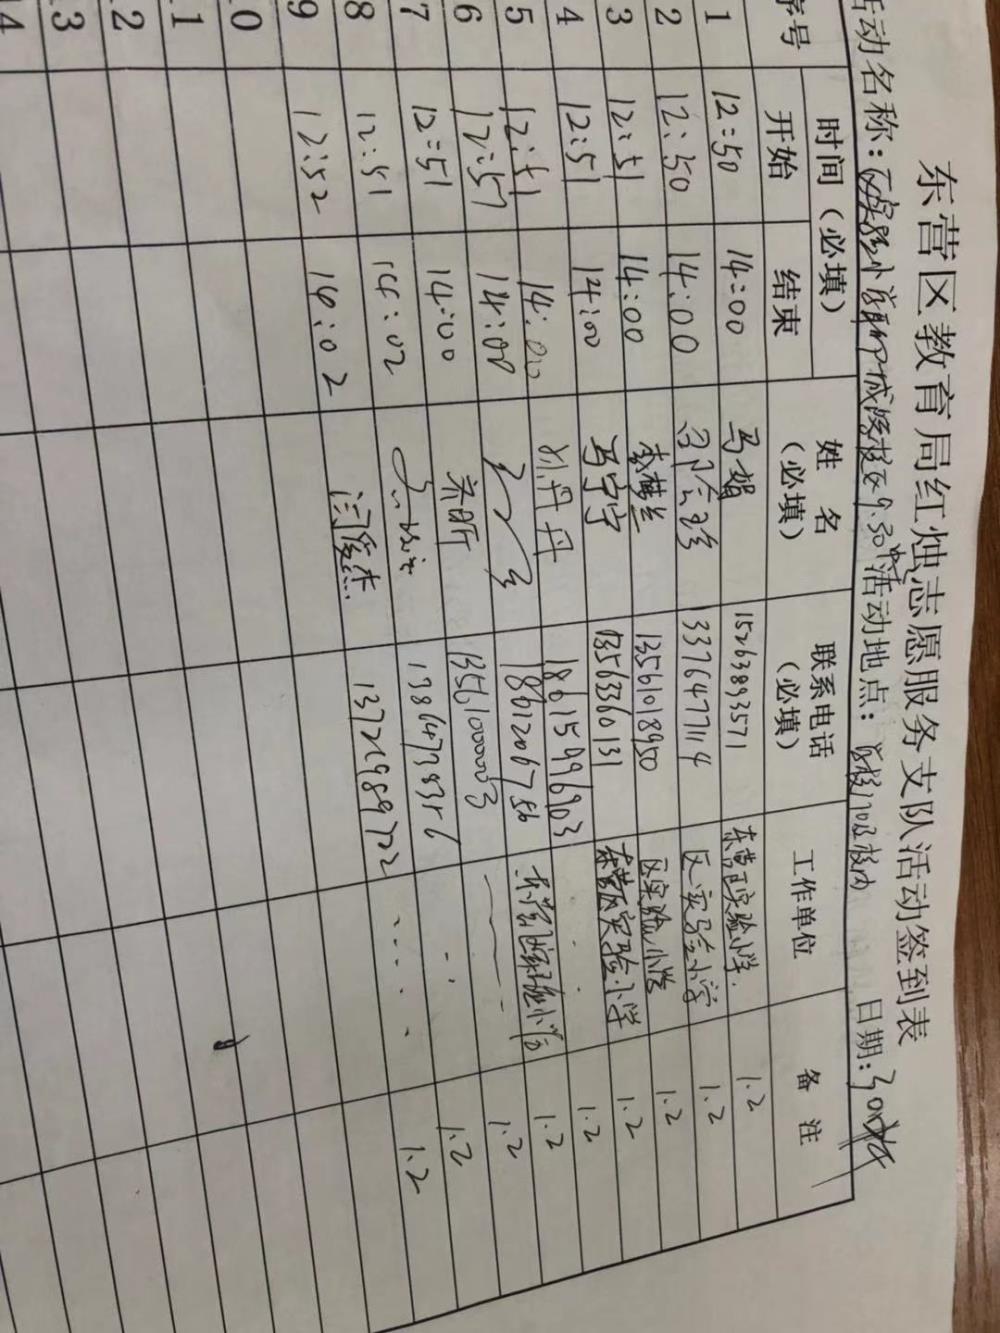 东营区教育局红烛志愿服务支队活动签到表
活动名称：区实验小学 活动地点： 日期：
序号 时间（必填） 姓名（必填） 联系电话（必填） 工作单位 备注
开始 结束
1 12:50 14:00 马娟 15263893571 东营区实验小学. 1.2
2 12:50 14:00 13376477114 区实验小学 1.2
3 12:51 14:00 李楚兰 13561018950 区实验小学 1.2
4 12:51 14:00 马宁宁 13563360131 东营区实验小学 1.2
5 12:51 14:00 刘丹丹 18615996903 1.2
6 12:51 14:00 18612067556 东营区实验小学 1.2
7 12:51 14:00 齐昕 1.2
8 12:51 14:02 1.2
9 12:52 14:02 闫俊杰 13721989722 1.2
10
11
12
13
14